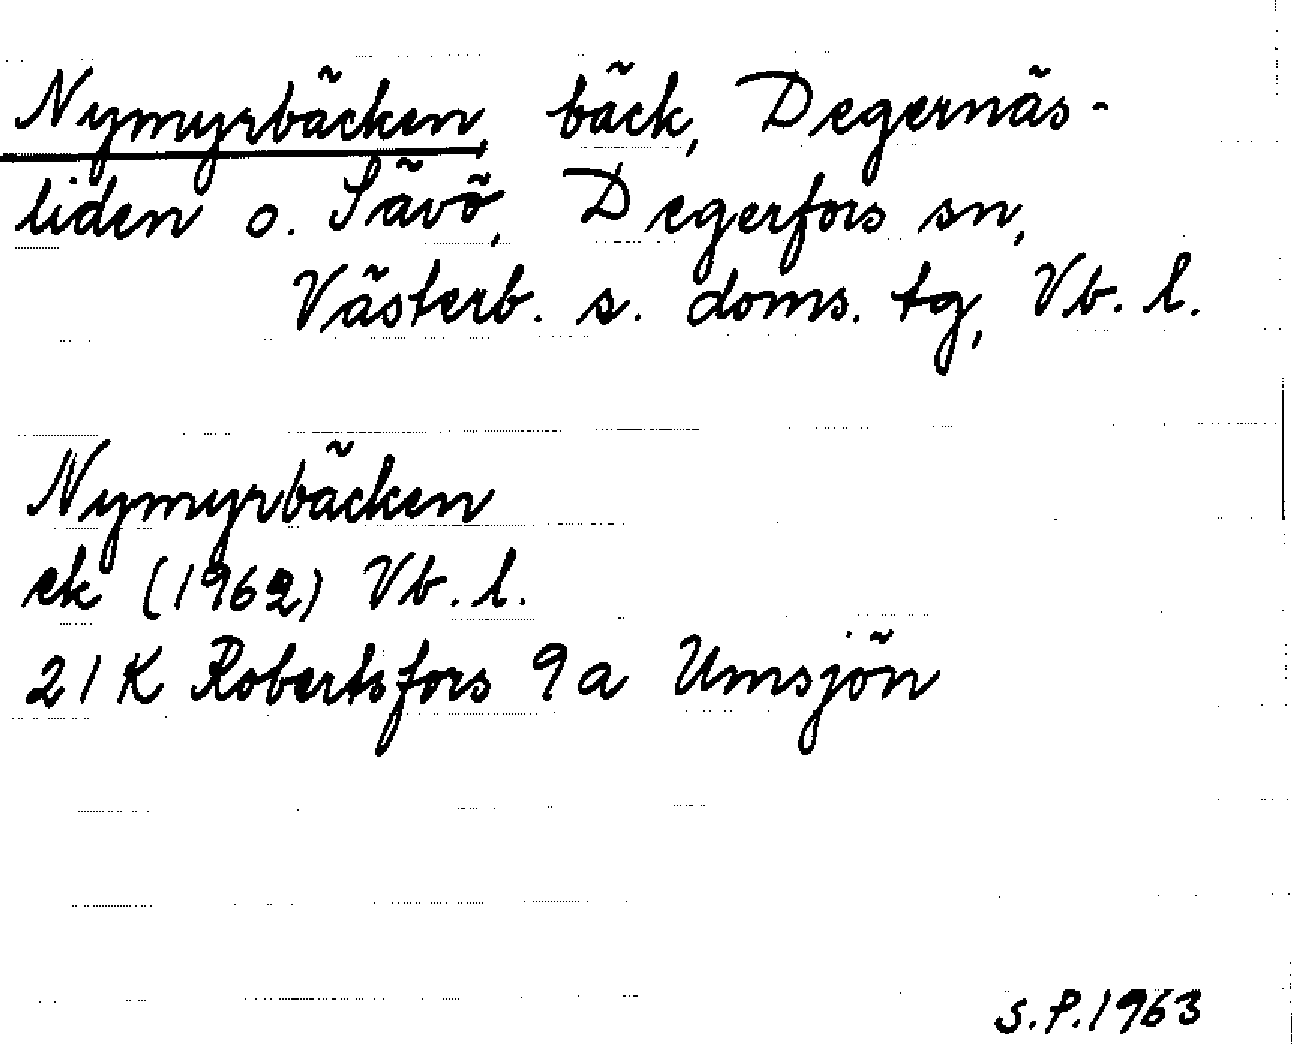 Nymyrbäcken, bäck, Degernäs-
liden o. Sävö, Degerfors sn,
Västerb. s. doms. tg, Vb. l.
Nymyrbäcken
ek (1962) Vb. l.
21 K Robertsfors 9 a Umsjön
S.P. 1963